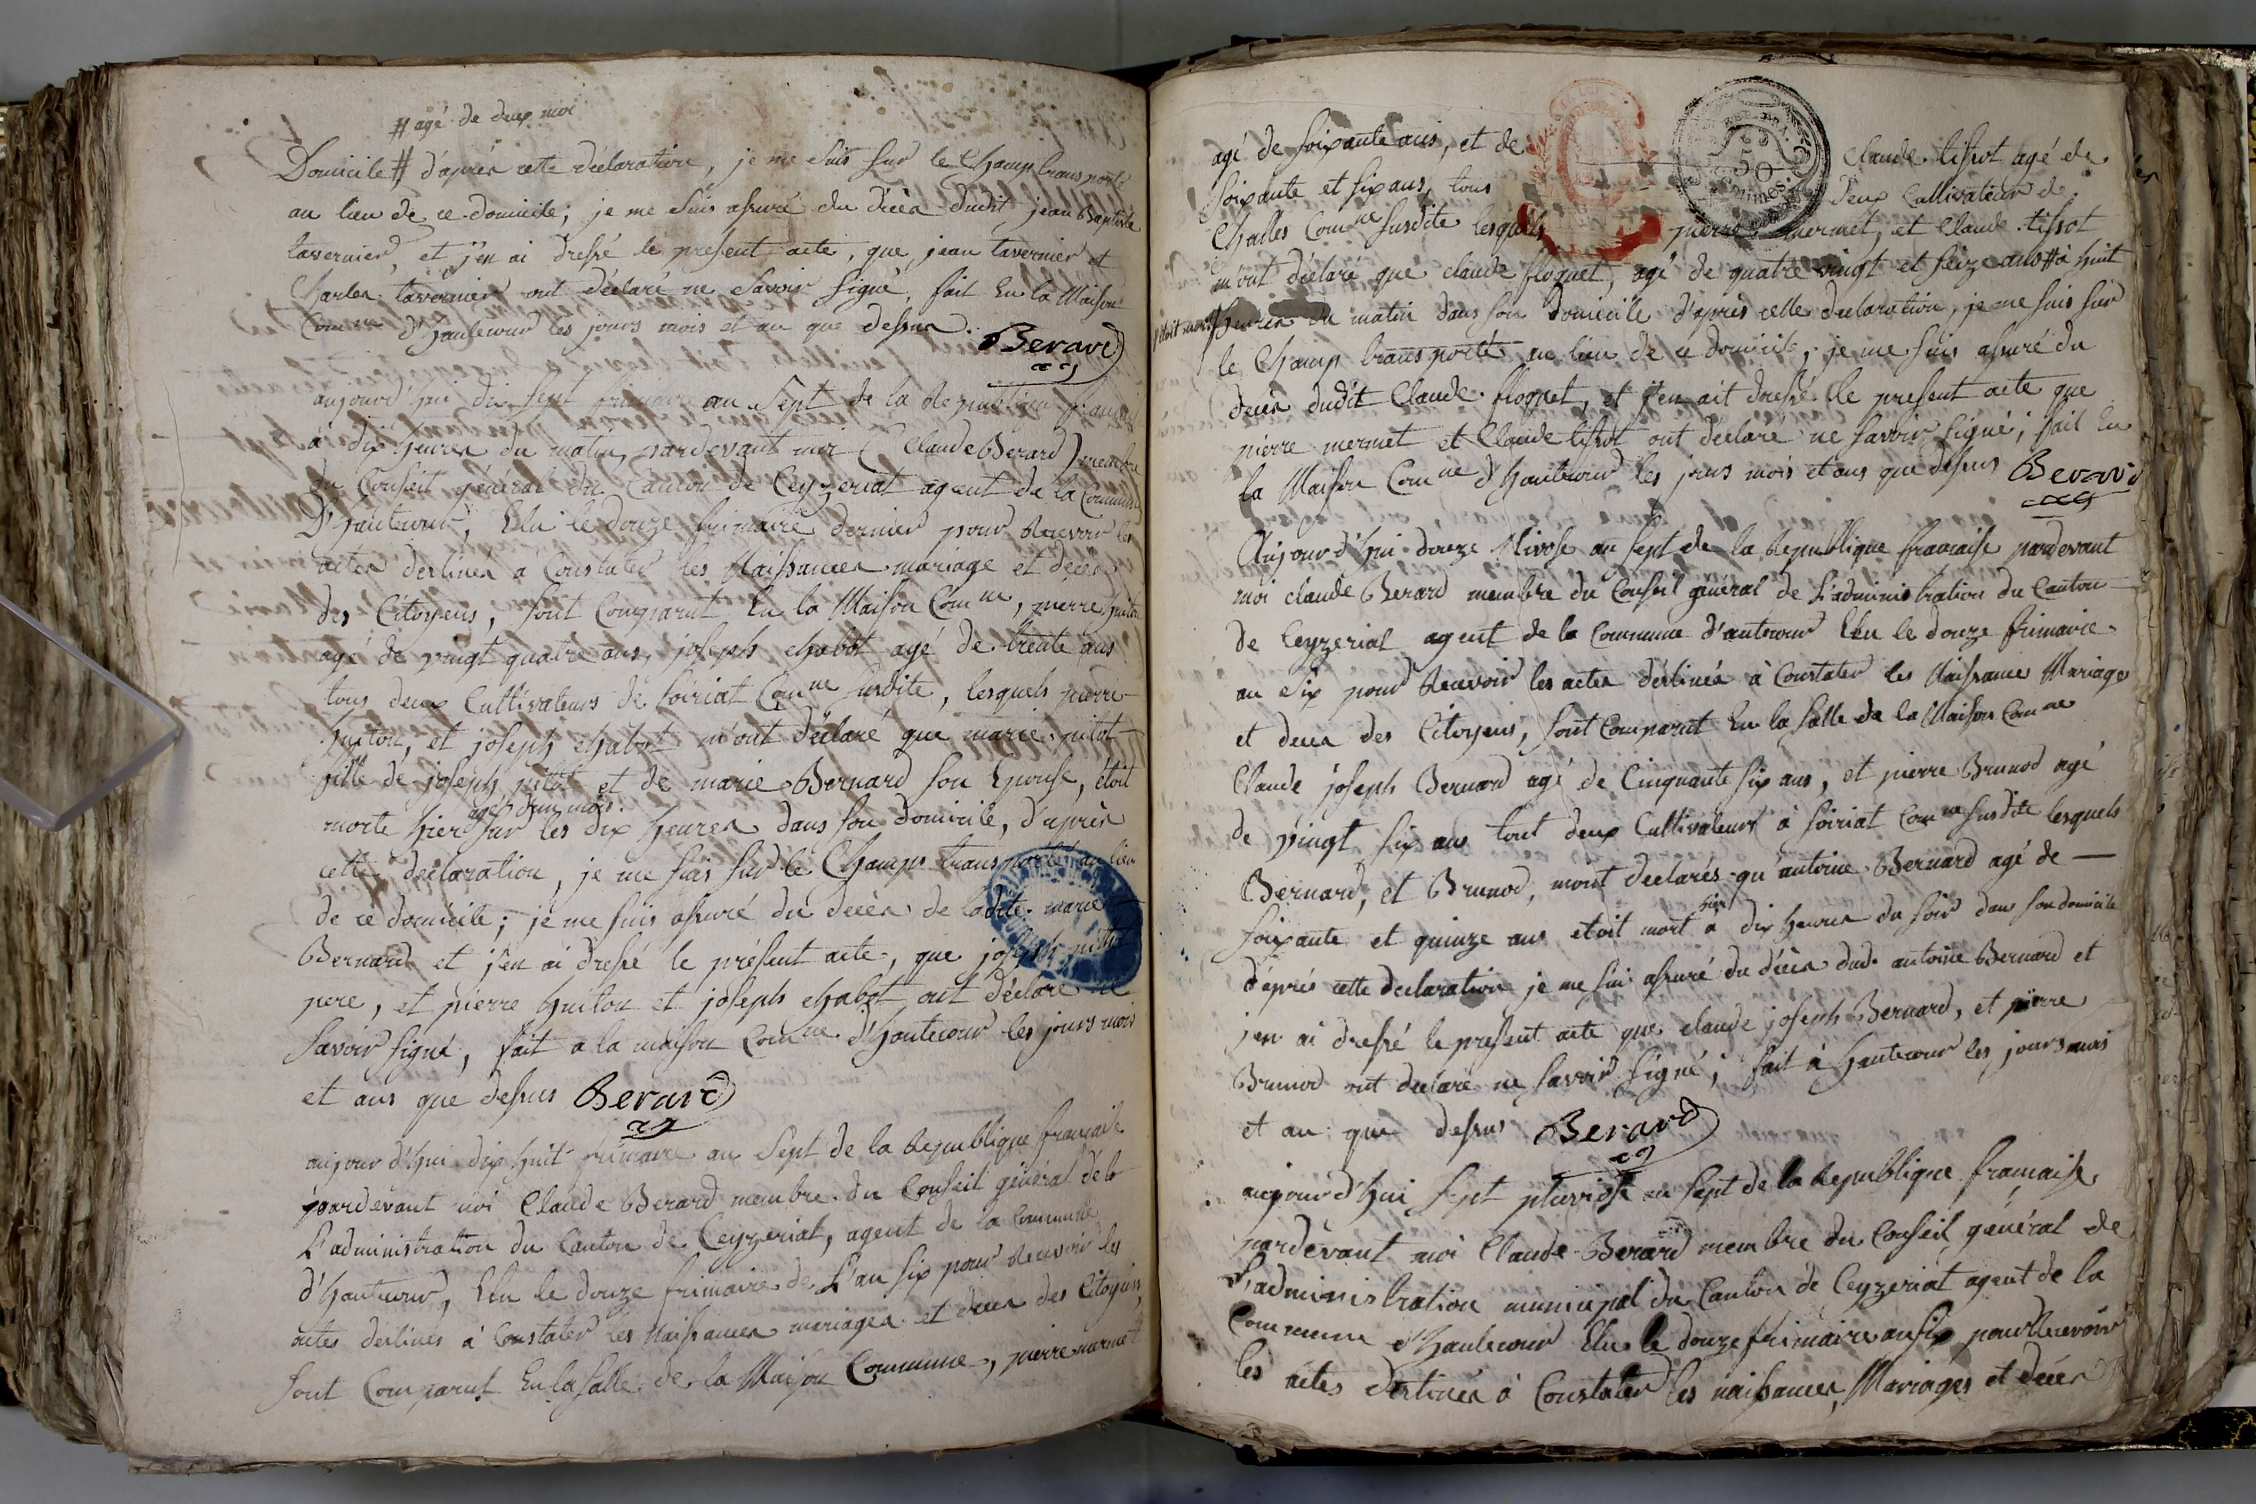 # agé de deux moi
Domicile # d'après cette déclaration, je me suis sur le Champ transporté
au lieu de ce domicile; je me suis assuré du décèa dudit jean Baptiste
tavernier, et j'en ai dressé le present acte, que jean tavernier et
Charles tavernier ont déclaré ne savoir signé, fait En la Maison
Com d'hautecour les jours mois et an que dessus. Berard
aujourd'hui dix sept frimaire an Sept de la Republique française
à dix heures du matin pardevant moi (Claude Berard) membre
du Conseil général du Canton de Ceyzeriat agent de la Commune
D'hautecour, Elu le douze frimaire dernier pour Recevoir les
actes destinés a Constater les Naissances mariage et décèa
des Citoyens, sont Comparut En la Maison Com ne, pierre
agé de vingt quatre ans, joseph chabot agé de trente ans
tous deux Cultivateurs de soiriat Com ne susdite, lesquels pierre
huiton, et joseph chabot m'ont déclaré que marie pitot
fille de joseph pitot et de marie Bernard son Epouse, étoit
agés d'un mois.
morte hier sur les dix heures dans son domicile, d'après
cette declaration, je me suis sur le Champ transporté au lieu
de ce domicile; je me suis assuré du decèa de ladite marie
Bernard et j'en ai dressé le présent acte, que joseph pitot
pere, et pierre huiton et joseph chabot ont déclaré ne
savoir signé, fait a la maison Com ne d'hautecour les jours mois
et ans que dessus Berard
aujourd'hui dix huit frimaire an Sept de la Republique française
pardevant moi Claude Berard membre du Conseil général de
L'administration du Canton de Ceyzeriat, agent de la Commune
d'hautecour, Elu le douze frimaire de L'an six pour Recevoir les
actes destinés à Constater les Naissances mariages et décèa des Citoyens,
sont Comparut En la salle de la Maison Commune, pierre mermet
agé de soixante ans, et de Claude tissot agé de
soixante et six ans, tous deux Cultivateur de
Challes Com ne susdite lesquels pierre mermet, et Claude tissot
m'ont déclaré que claude floquet, agé de quatre vingt et seize ans # à huit
# étoit mort
heures du matin dans son domicile d'après cette declaration, je me suis sur
le Champ transporté au lieu de ce domicile, je me suis assuré du
decèa dudit Claude floquet, et j'en ait dressé le present acte que
pierre mermet et Claude tissot ont déclaré ne savoir signé; fait En
la Maison Com ne d'hautecour les jours mois et ans que dessus Berard
Aujourd'hui douze Nivose an sept de la Republique française pardevant
moi claude Berard membre du Conseil général de L'administration du Canton
de Ceyzeriat agent de la Commune d'autecour Elu le douze frimaire
an Six pour Recevoir les actes destinés à Constater les Naissance Mariage
et decea des Citoyens, sont Comparut En la salle de la Maison Com ne
Claude joseph Bernard agé de Cinquante six ans, et pierre Brunod agé
de vingt six ans tout deux Cultivateurs à soiriat Com ne susdite lesquels
Bernard, et Brunod, mont declarés qu'antoine Bernard agé de —
hier
soixante et quinze ans etoit mort a dix heures du soir dans son domicile
d'après cette declaration je me suis assuré du décèa dud. antoine Bernard et
j'en ai dressé le present acte que claude joseph Bernard, et pierre
Brunod ont declaré ne savoir signé; fait à hautecour les jours mois
et an que dessus Berard
aujourd'hui sept pluviose an sept de la Republique française
pardevant moi Claude Berard membre du Conseil général de
L'administration municipal du Canton de Ceyzeriat agent de la
Commune d'hautecour Elu le douze frimaire an six pour Recevoir
les actes destinés à Constater les naissances, Mariages et décèa